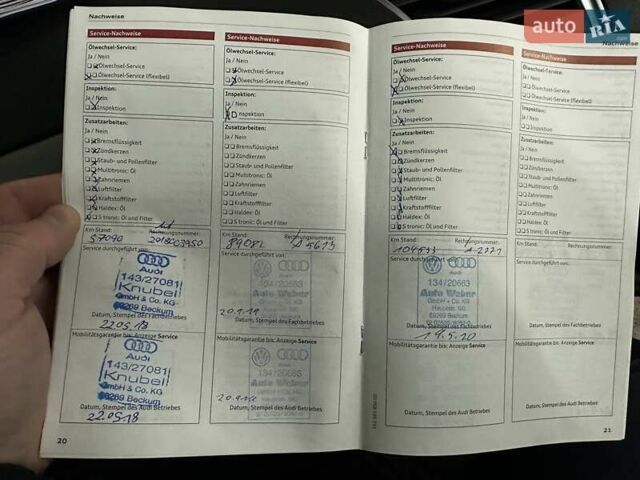 auto RIA .com
Nachweise
Service-Nachweise
Ölwechsel-Service:
Ja / Nein
Ölwechsel-Service
Ölwechsel-Service (flexibel)
Inspektion:
Ja / Nein
Inspektion
Zusatzarbeiten:
Ja / Nein
Bremsflüssigkeit
Zündkerzen
Staub- und Pollenfilter
Multitronic: Öl
Zahnriemen
Luftfilter
Kraftstofffilter
Haldex: Öl
S tronic: Öl und Filter
Km Stand: Rechnungsnummer:
57090
Service durchgeführt von:
Audi
143/27081
Knubel
GmbH & Co. KG
59269 Beckum
Datum, Stempel des Fachbetriebes
22.05.18
Mobilitätsgarantie bis: Anzeige Service
Audi
143/27081
Knubel
GmbH & Co. KG
59269 Beckum
Datum, Stempel des Audi Betriebes
22.05.18
20
Service-Nachweise
Ölwechsel-Service:
Ja / Nein
Ölwechsel-Service
Ölwechsel-Service (flexibel)
Inspektion:
Ja / Nein
Inspektion
Zusatzarbeiten:
Ja / Nein
Bremsflüssigkeit
Zündkerzen
Staub- und Pollenfilter
Multitronic: Öl
Zahnriemen
Luftfilter
Kraftstofffilter
Haldex: Öl
S tronic: Öl und Filter
Km Stand: Rechnungsnummer:
Service durchgeführt von:
Audi
134/20663
Auto Weber
GmbH & Co. KG
Datum, Stempel des Fachbetriebes
Mobilitätsgarantie bis: Anzeige Service
Audi
134/20663
Auto Weber
Datum, Stempel des Audi Betriebes
Service-Nachweise
Ölwechsel-Service:
Ja / Nein
Ölwechsel-Service
Ölwechsel-Service (flexibel)
Inspektion:
Ja / Nein
Inspektion
Zusatzarbeiten:
Ja / Nein
Bremsflüssigkeit
Zündkerzen
Staub- und Pollenfilter
Multitronic: Öl
Zahnriemen
Luftfilter
Kraftstofffilter
Haldex: Öl
S tronic: Öl und Filter
Km Stand: Rechnungsnummer:
Service durchgeführt von:
Audi
134/20663
Auto Weber
GmbH & Co. KG
Datum, Stempel des Fachbetriebes
Mobilitätsgarantie bis: Anzeige Service
Datum, Stempel des Audi Betriebes
Nachweise
Service-Nachweise
Ölwechsel-Service:
Ja / Nein
Ölwechsel-Service
Ölwechsel-Service (flexibel)
Inspektion:
Ja / Nein
Inspektion
Zusatzarbeiten:
Ja / Nein
Bremsflüssigkeit
Zündkerzen
Staub- und Pollenfilter
Multitronic: Öl
Zahnriemen
Luftfilter
Kraftstofffilter
Haldex: Öl
S tronic: Öl und Filter
Km Stand: Rechnungsnummer:
Service durchgeführt von:
Datum, Stempel des Fachbetriebes
Mobilitätsgarantie bis: Anzeige Service
Datum, Stempel des Audi Betriebes
21